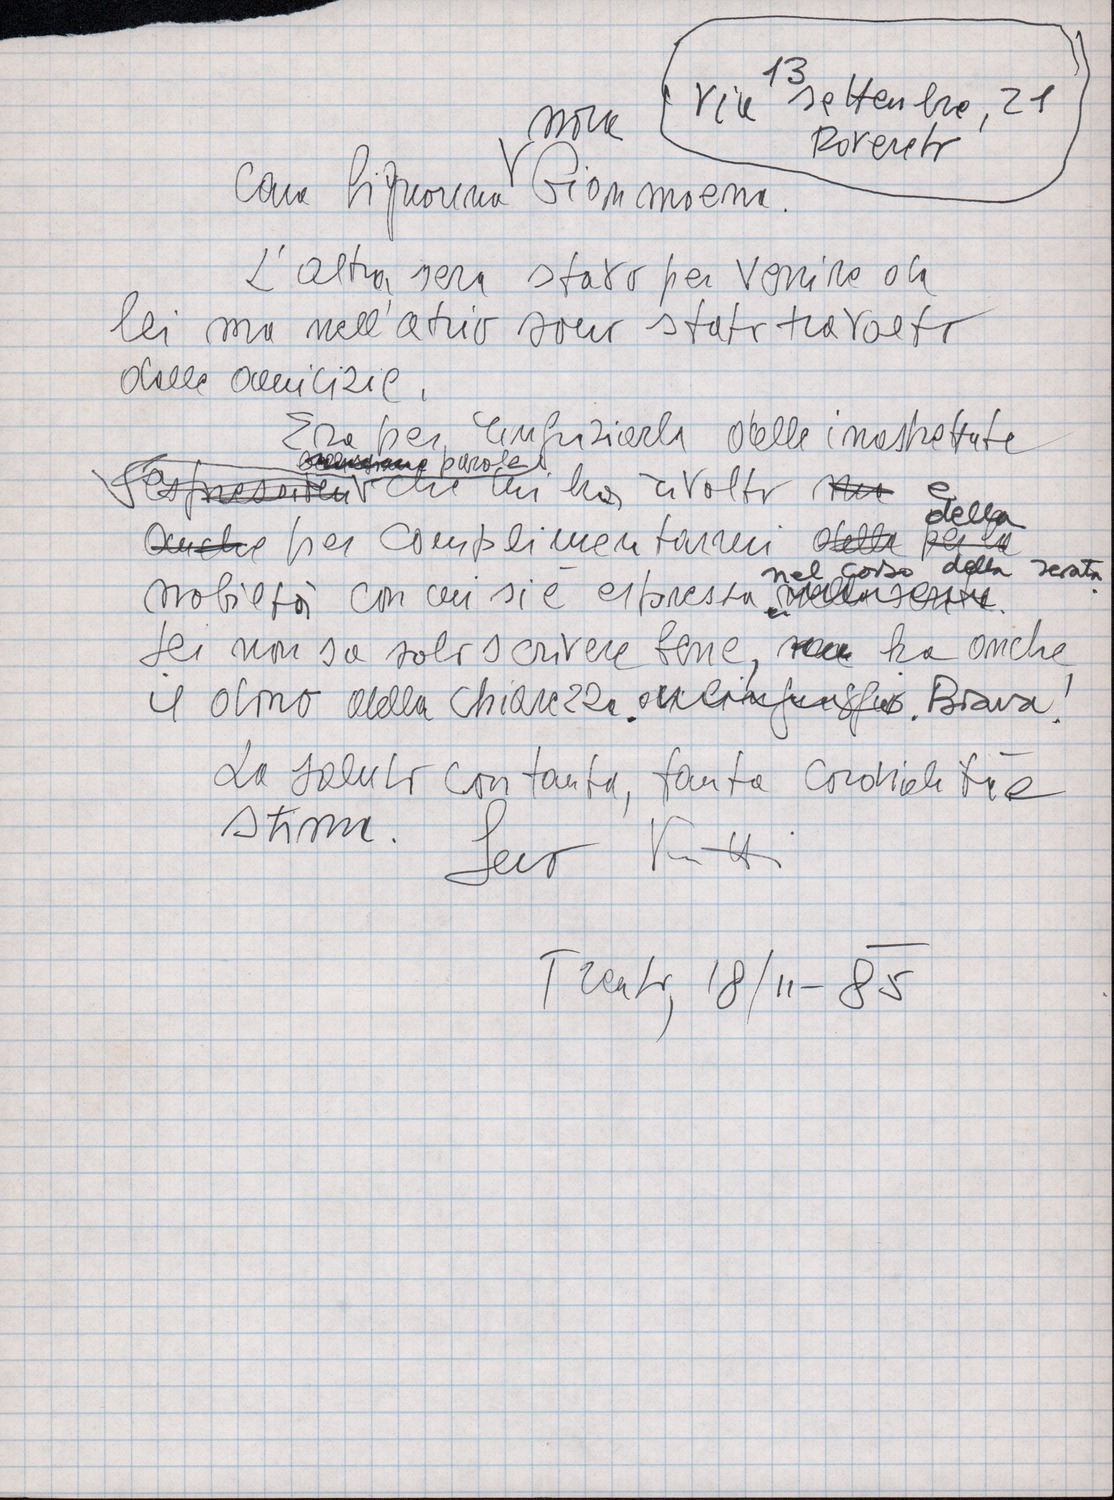 Via 13 settembre, 21
Rovereto
nora
Cara Signorina Gianmoena.
L'altra sera stavo per venire da
lei ma nell'atrio sono stato travolto
dalle amicizie.
Era per ringraziarla delle inaspettate
parole
espressioni che mi ha rivolto e
della
anche per complimentarmi della per la
nel corso della serata.
nobiltà con cui si è espressa
Lei non sa solo scrivere bene, ma ha anche
il dono della chiarezza. Brava!
La saluto con tanta, tanta cordialità e
stima.
Suo
Trento, 18/11-85